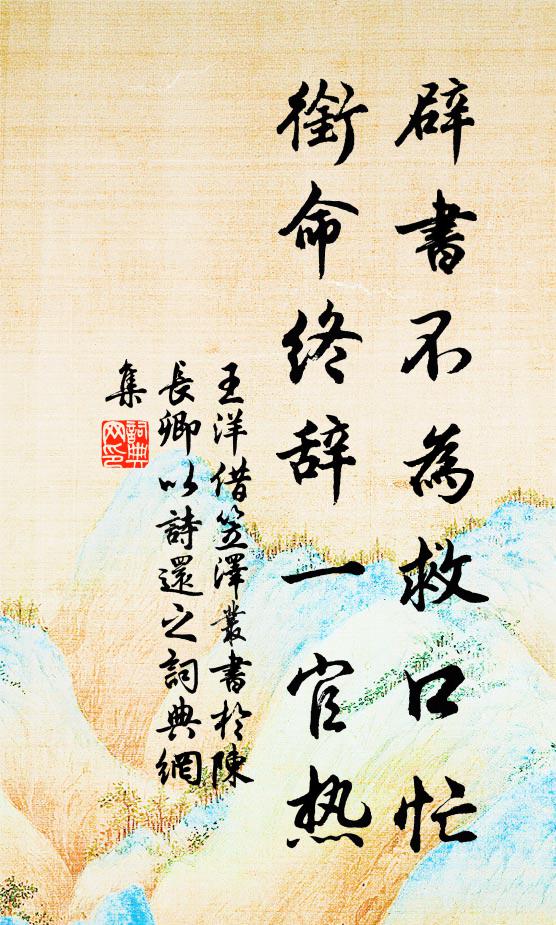 辟書不為救口忙
銜命终辞一官热
王洋借笠澤叢書於陳
長卿以詩還之詞典網
集
詞典網印